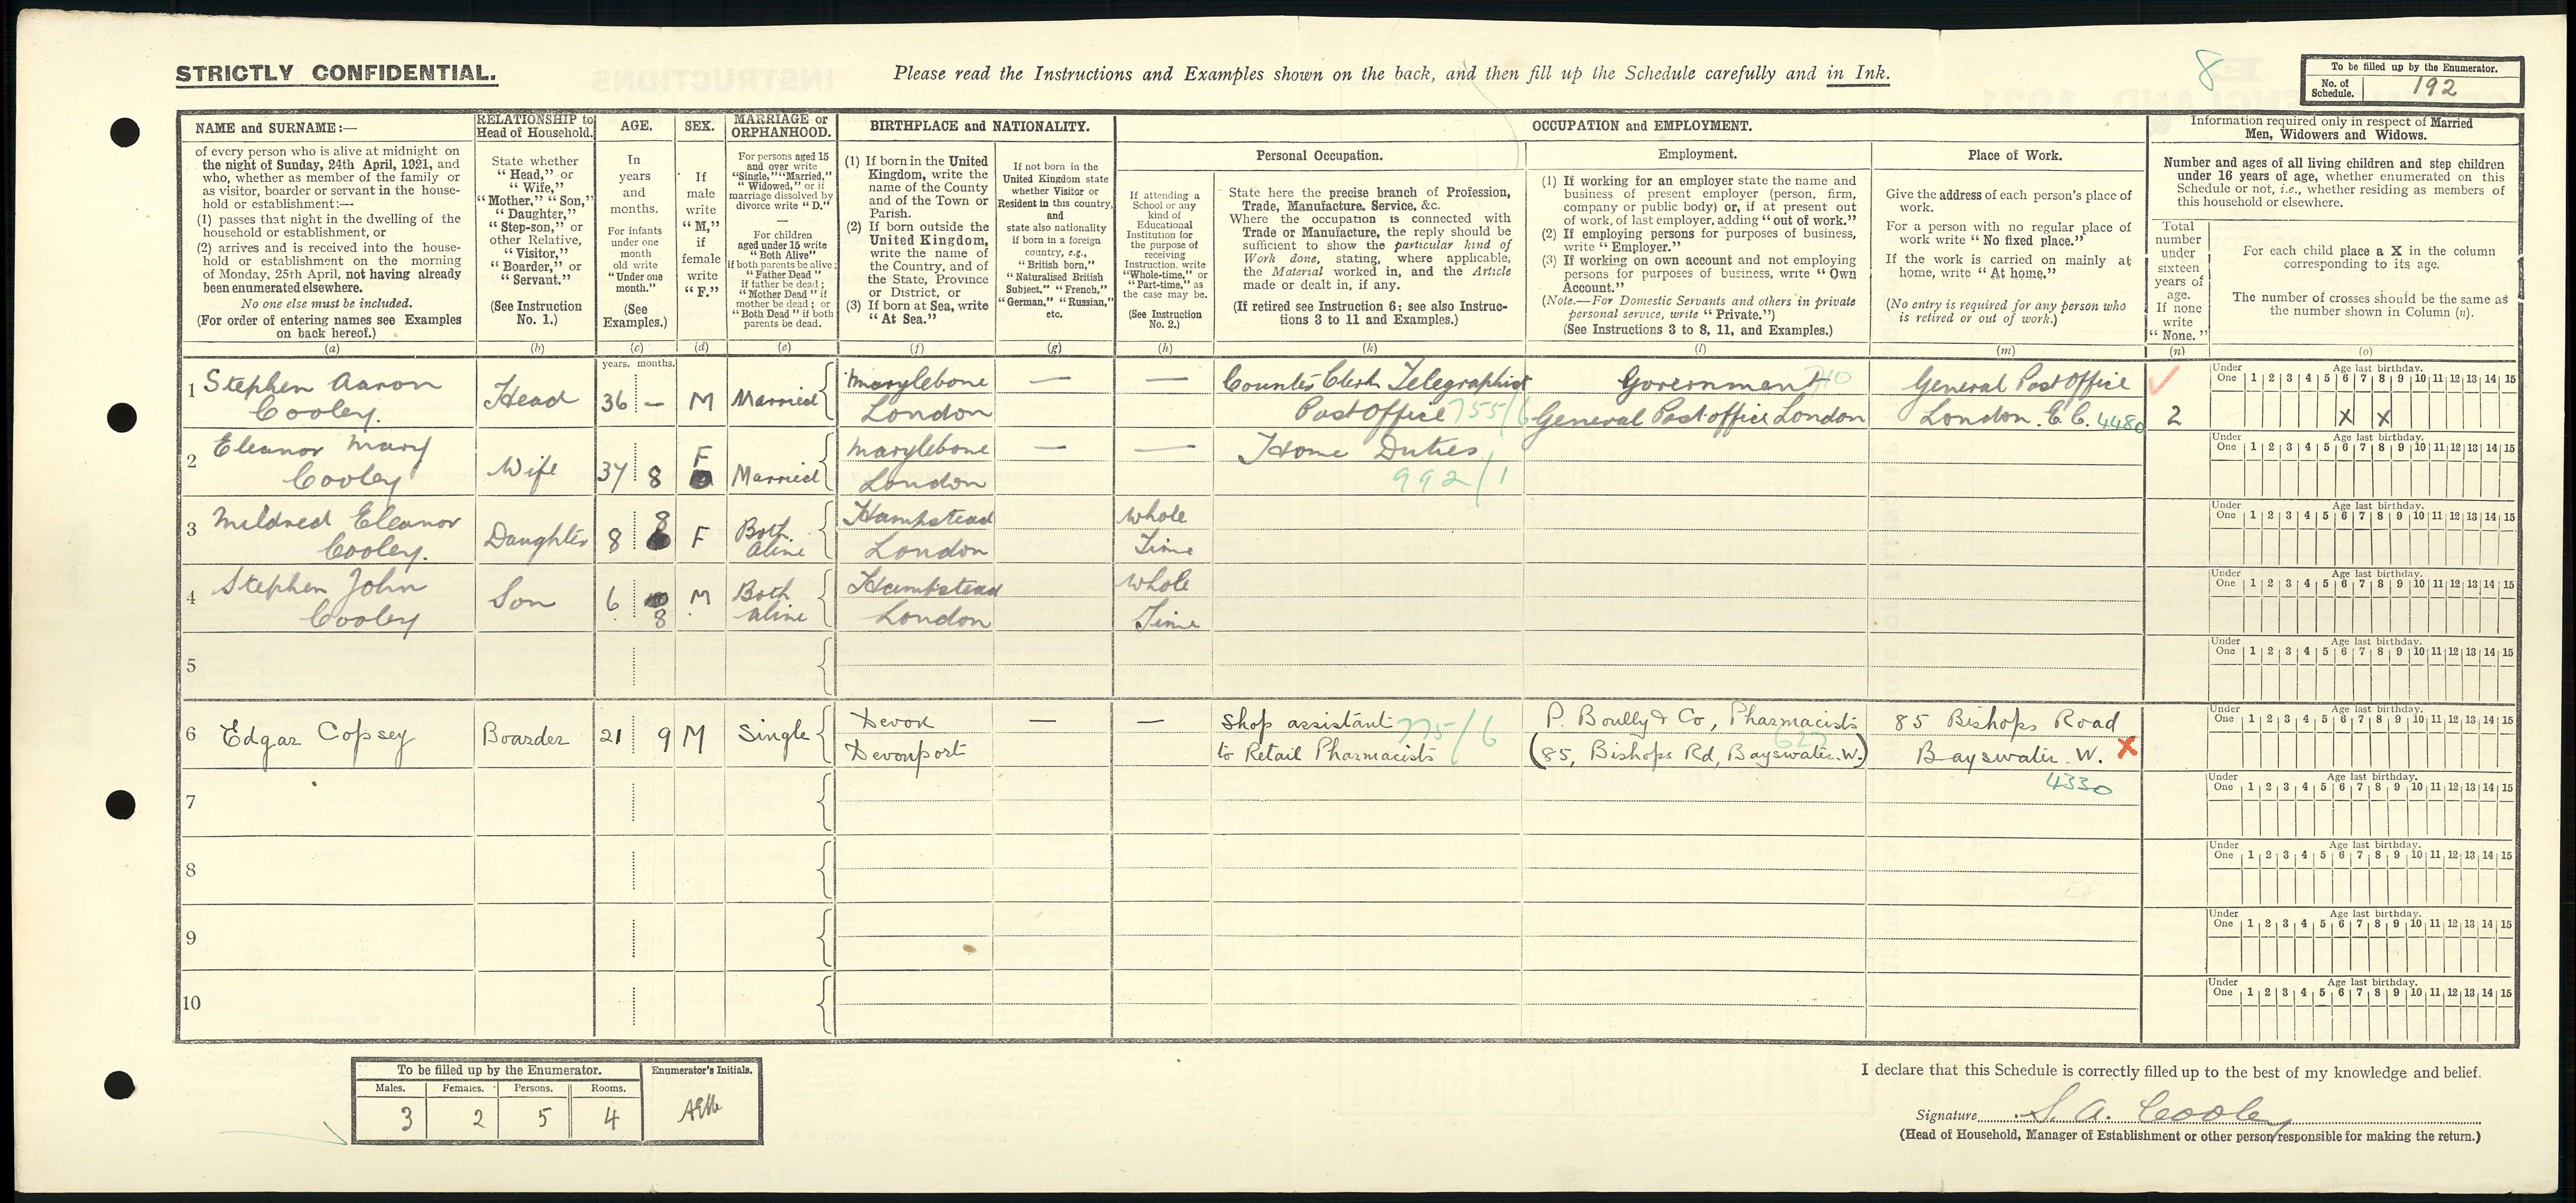 STRICTLY CONFIDENTIAL.
Please read the Instructions and Examples shown on the back, and then fill up the Schedule carefully and in Ink.
8
To be filled up by the Enumerator.
No. of Schedule. 192
NAME and SURNAME:—
of every person who is alive at midnight on
the night of Sunday, 24th April, 1921, and
who, whether as member of the family or
as visitor, boarder or servant in the house-
hold or establishment:—
(1) passes that night in the dwelling of the
household or establishment, or
(2) arrives and is received into the house-
hold or establishment on the morning
of Monday, 25th April, not having already
been enumerated elsewhere.
No one else must be included.
(For order of entering names see Examples
on back hereof.)
(a)
RELATIONSHIP to
Head of Household.
State whether
"Head," or
"Wife,"
"Mother," "Son,"
"Daughter,"
"Step-son," or
other Relative,
"Visitor,"
"Boarder," or
"Servant."
(See Instruction
No. 1.)
(b)
AGE.
In
years
and
months.
For infants
under one
month
old write
"Under one
month."
(See
Examples.)
(c)
SEX.
If
male
write
"M,"
if
female
write
"F."
(d)
MARRIAGE or
ORPHANHOOD.
For persons aged 15
and over write
"Single," "Married,"
"Widowed," or if
marriage dissolved by
divorce write "D."
—
For children
aged under 15 write
"Both Alive"
if both parents be alive;
"Father Dead"
if father be dead;
"Mother Dead" if
mother be dead; or
"Both Dead" if both
parents be dead.
(e)
BIRTHPLACE and NATIONALITY.
(1) If born in the United
Kingdom, write the
name of the County
and of the Town or
Parish.
(2) If born outside the
United Kingdom,
write the name of
the Country, and of
the State, Province
or District, or
(3) If born at Sea, write
"At Sea."
(f)
If not born in the
United Kingdom state
whether Visitor or
Resident in this country,
and
state also nationality
if born in a foreign
country, e.g.,
"British born,"
"Naturalised British
Subject," "French,"
"German," "Russian,"
etc.
(g)
OCCUPATION and EMPLOYMENT.
If attending a
School or any
kind of
Educational
Institution for
the purpose of
receiving
Instruction, write
"Whole-time," or
"Part-time," as
the case may be.
(See Instruction
No. 2.)
(h)
Personal Occupation.
State here the precise branch of Profession,
Trade, Manufacture, Service, &c.
Where the occupation is connected with
Trade or Manufacture, the reply should be
sufficient to show the particular kind of
Work done, stating, where applicable,
the Material worked in, and the Article
made or dealt in, if any.
(If retired see Instruction 6; see also Instruc-
tions 3 to 11 and Examples.)
(k)
Employment.
(1) If working for an employer state the name and
business of present employer (person, firm,
company or public body) or, if at present out
of work, of last employer, adding "out of work."
(2) If employing persons for purposes of business,
write "Employer."
(3) If working on own account and not employing
persons for purposes of business, write "Own
Account."
(Note.—For Domestic Servants and others in private
personal service, write "Private.")
(See Instructions 3 to 8, 11, and Examples.)
(l)
Place of Work.
Give the address of each person's place of
work.
For a person with no regular place of
work write "No fixed place."
If the work is carried on mainly at
home, write "At home."
(No entry is required for any person who
is retired or out of work.)
(m)
Information required only in respect of Married
Men, Widowers and Widows.
Number and ages of all living children and step children
under 16 years of age, whether enumerated on this
Schedule or not, i.e., whether residing as members of
this household or elsewhere.
Total
number
under
sixteen
years of
age.
If none
write
"None."
(n)
For each child place a X in the column
corresponding to its age.
The number of crosses should be the same as
the number shown in Column (n).
(o)
years. months.
Under One Age last birthday. 1 2 3 4 5 6 7 8 9 10 11 12 13 14 15
1 Stephen Aaron Head 36 — M Married Marylebone — — Counter Clerk Telegraphist Government General Post Office
Cooley. London Post Office 755/6 General Post office London London. E.C. 4480 2 X X
Under One Age last birthday. 1 2 3 4 5 6 7 8 9 10 11 12 13 14 15
2 Eleanor Mary Wife 37 8 F Married Marylebone — — Home Duties
Cooley London 992/1
Under One Age last birthday. 1 2 3 4 5 6 7 8 9 10 11 12 13 14 15
3 Mildred Eleanor Daughter 8 8 F Both Hampstead Whole
Cooley. Alive London Time
Under One Age last birthday. 1 2 3 4 5 6 7 8 9 10 11 12 13 14 15
4 Stephen John Son 6 8 M Both Hampstead Whole
Cooley alive London Time
Under One Age last birthday. 1 2 3 4 5 6 7 8 9 10 11 12 13 14 15
5
Under One Age last birthday. 1 2 3 4 5 6 7 8 9 10 11 12 13 14 15
6 Edgar Copsey Boarder 21 9 M Single Devon — — Shop assistant 775/6 P. Boully & Co, Pharmacists 85 Bishops Road
Devonport to Retail Pharmacists (85, Bishops Rd, Bayswater. W.) Bayswater. W. X
4330
Under One Age last birthday. 1 2 3 4 5 6 7 8 9 10 11 12 13 14 15
7
Under One Age last birthday. 1 2 3 4 5 6 7 8 9 10 11 12 13 14 15
8
Under One Age last birthday. 1 2 3 4 5 6 7 8 9 10 11 12 13 14 15
9
Under One Age last birthday. 1 2 3 4 5 6 7 8 9 10 11 12 13 14 15
10
To be filled up by the Enumerator.
Males. Females. Persons. Rooms.
3 2 5 4
Enumerator's Initials.
I declare that this Schedule is correctly filled up to the best of my knowledge and belief.
Signature S. A. Cooley
(Head of Household, Manager of Establishment or other person responsible for making the return.)